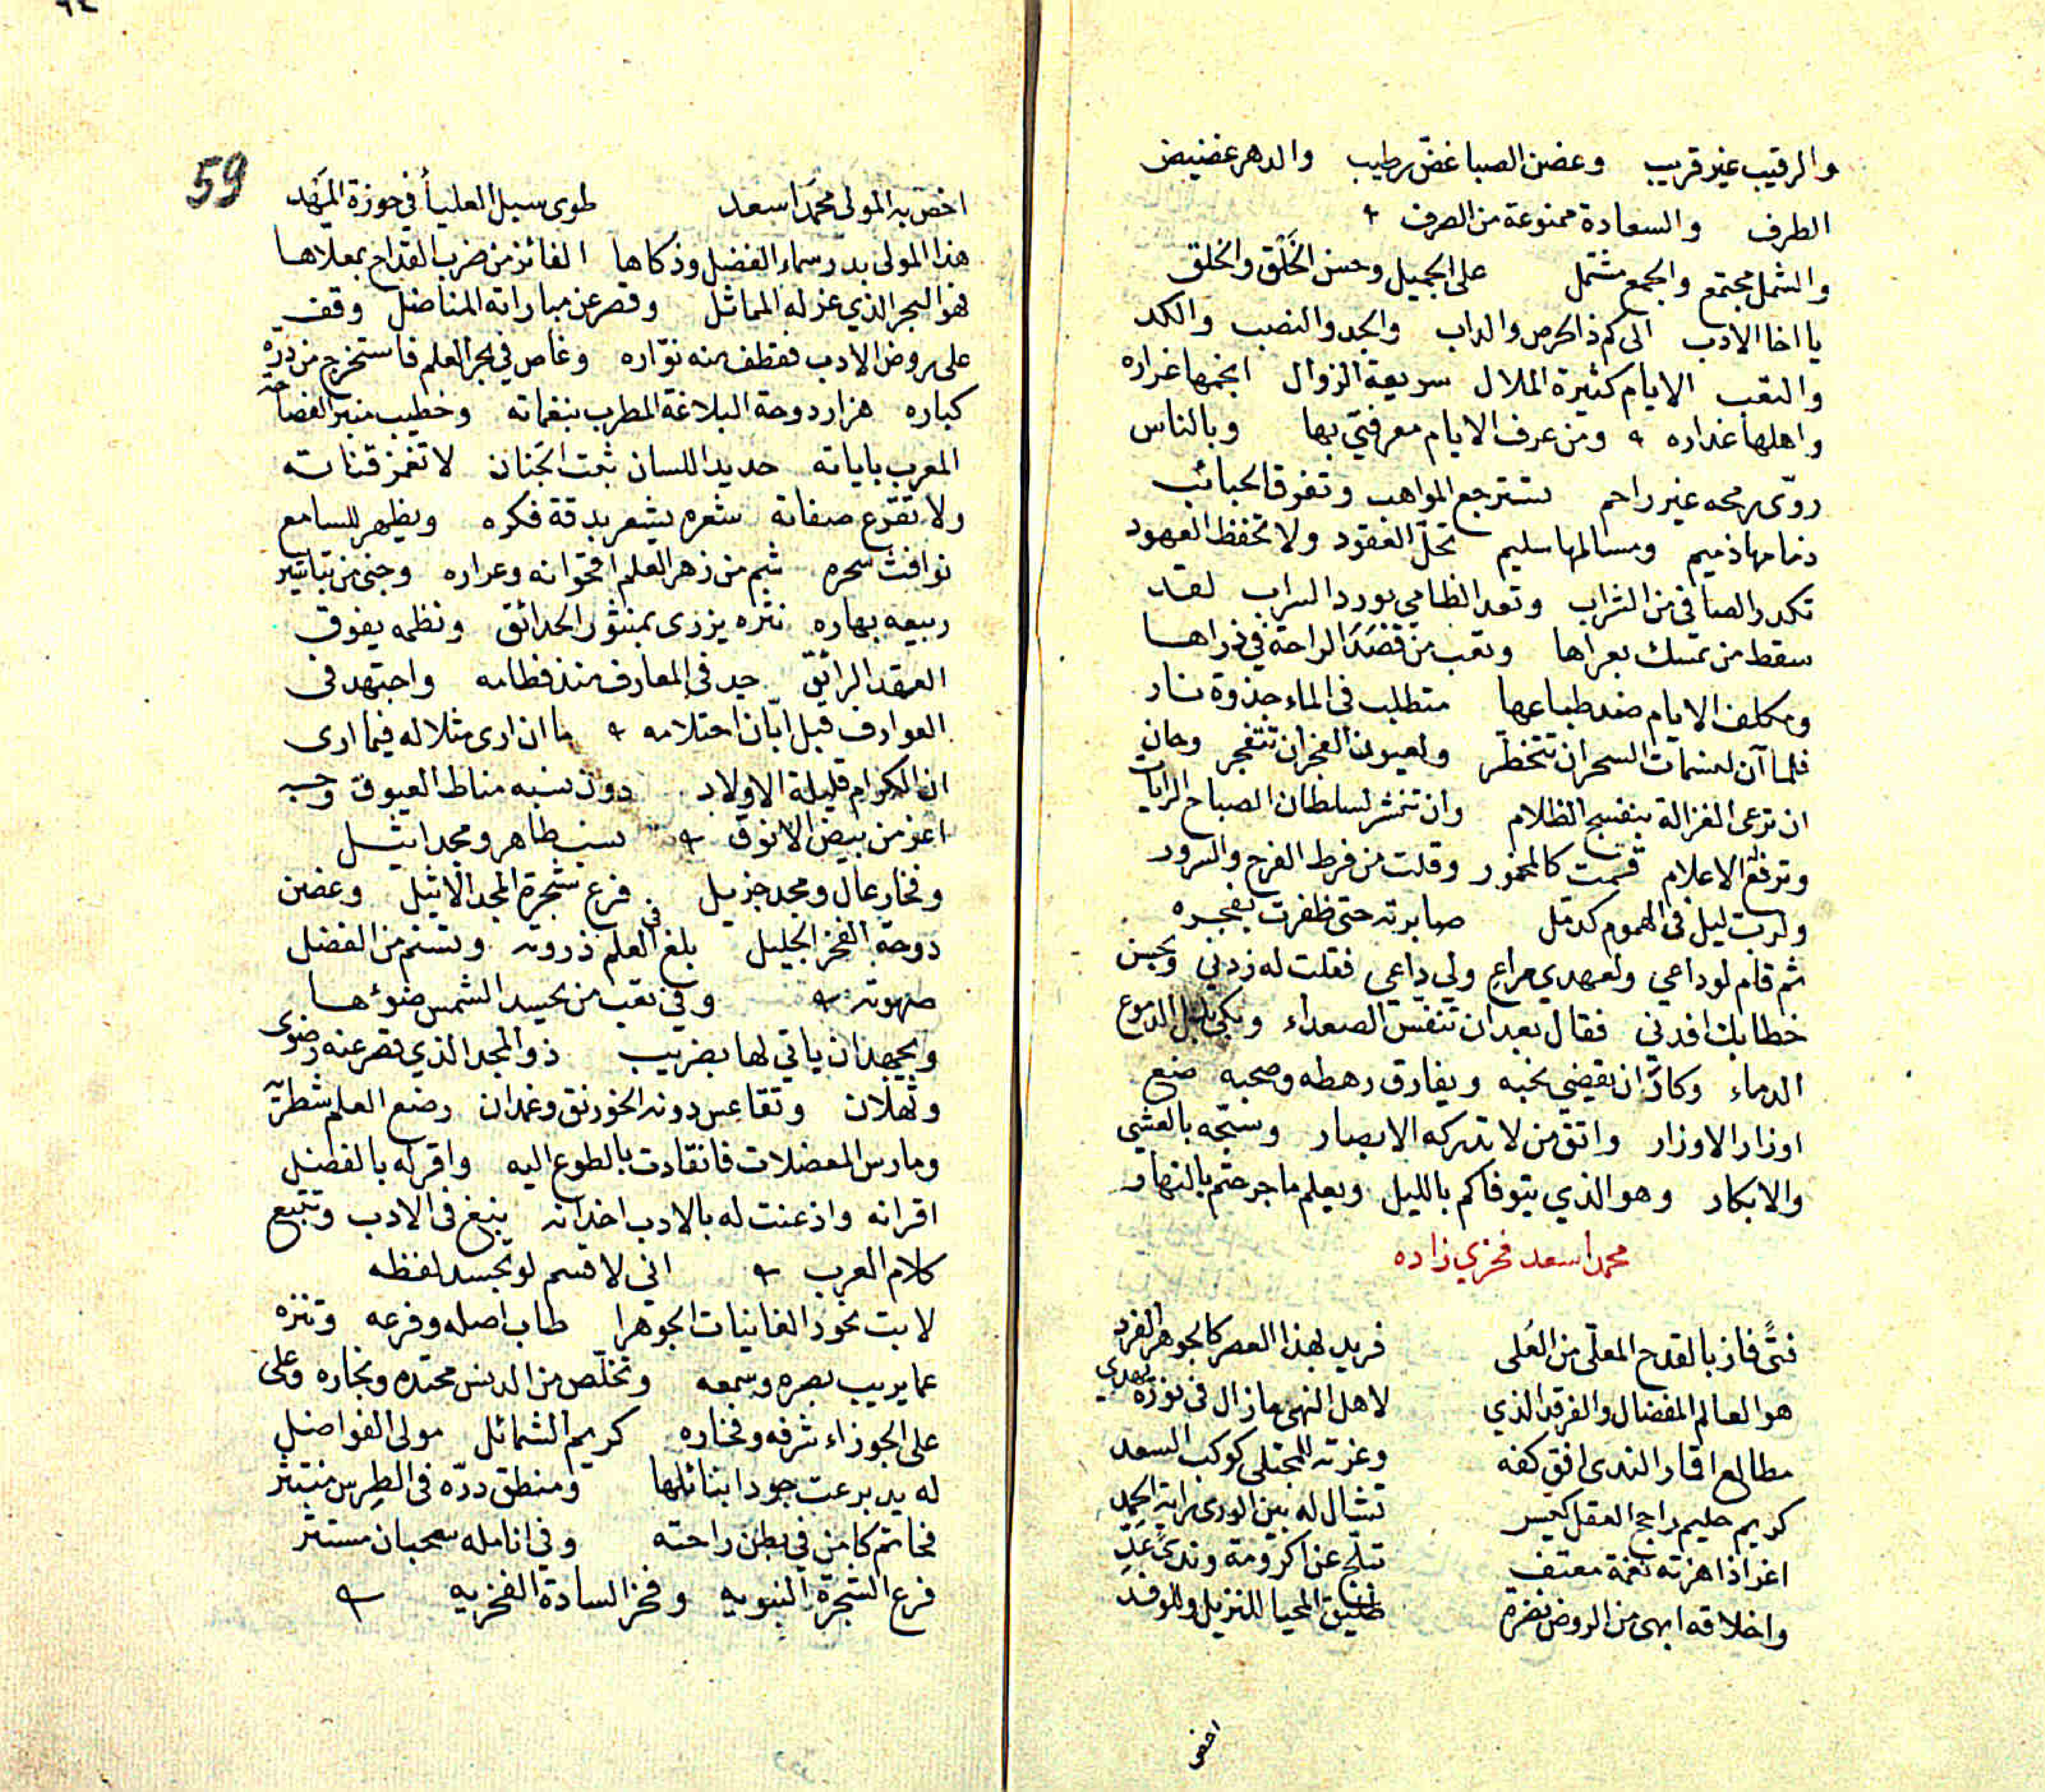 والرقيب غير قريب وغصن الصبا غض رطيب والدهر غضيض
الطرف والسعادة ممنوعة من الصرف
والشمل مجتمع والجمع مشتمل على الجميل وحسن الخَلْق والخلق
يا اخا الادب الى كم ذا الحرص والداب والجد والنصب والكد
والتعب الايام كثيرة الملال سريعة الزوال انجمها غراره
واهلها غداره ومن عرف الايام معرفتي بها وبالناس
روّى رمحه غير راحم تسترجع المواهب وتفرق الحبائب
ذمامها ذميم ومسالمها سليم تحلّ العقود ولا تحفظ العهود
تكدر الصافي من الشراب وتعد الظامي بورد السراب لقد
سقط من تمسك بعراها وتعب من قصد الراحة في ذراها
ومكلف الايام ضد طباعها متطلب في الماء جذوة نار
فلما آن لنسمات السحر ان تتخطر ولعيون الفجر ان تتفجر وحان
ان ترعى الغزالة بنفسج الظلام وان تنشر لسلطان الصباح الرايات
وترفع الاعلام قمت كالمخمور وقلت من فرط الفرح والسرور
ولرب ليل في الهموم كدمل صابرته حتى ظفرت بفجره
ثم قام لوداعي ولعهدي مراع ولي داعي فقلت له زدني وبحسن
خطابك افدني فقال بعد ان تنفس الصعداء وبكى بدل الدموع
الدماء وكاد ان يقضي نحبه ويفارق رهطه وصحبه ضع
اوزار الاوزار واتق من لا تدركه الابصار وسبّحه بالعشي
والابكار وهو الذي يتوفاكم بالليل ويعلم ما جرحتم بالنهار
محمد اسعد فخري زاده
فتًى فاز بالقدح المعلّى من العُلى فريد بهذا العصر كالجوهر الفرد
هو العالم المفضال والفرقد الذي لاهل النهى ما زال في نوره يهدي
مطالع اقمار الندى افق كفه وغرته للمجتلى كوكب السعد
كريم حليم راجح العقل كيس تشال له بين الورى راية الحمد
اغر اذا هزته نغمة معتف تبلّج عن اكرومة وندًى عَدّ
واخلاقه ابهى من الروض نضرة طليق المحيا للنزيل وللوفد
اخص
59
اخص به المولى محمد اسعد طوى سبل العلياء في حوزة المَهد
هذا المولى بدر سماء الفضل وذكاها الفائز من ضرب القداح بمعلاها
فهو البحر الذي عز له المماثل وقصر عن مباراته المناضل وقف
على روض الادب فقطف منه نوّاره وغاص في بحر العلم فاستخرج من درره
كباره هزار دوحة البلاغة المطرب بنغماته وخطيب منبر الفصاحة
المعرب باياته حديد اللسان ثبت الجنان لا تغمز قناته
ولا تقرع صفاته شعره يشعر بدقة فكره ويظهر للسامع
نوافث سحره شم من زهر العلم اقحوانه وعراره وجنى من تباشير
ربيعه بهاره نثره يزرى بمنثور الحدائق ونظمه يفوق
العقد الرائق جد في المعارف منذ فطامه واجتهد في
العوارف قبل ابّان احتلامه ما ان ارى مثلا له فيما ارى
ان الكرام قليلة الاولاد دون نسبه مناط العيوق وحسبه
اعز من بيض الانوق نسب طاهر ومجد اثيل
وفخار عال ومجد جزيل فرع شجرة المجد الاثيل وغصن
دوحة الفخر الجليل بلغ في العلم ذروته وتسنم من الفضل
صهوته وفي تعب من يحسد الشمس ضوءها
ويجهد ان ياتي لها بضريب ذو المجد الذي قصر عنه رضوى
وثهلان وتقاعس دونه الخورنق وغمدان رضع العلم شطريّه
ومارس المعضلات فانقادت بالطوع اليه واقر له بالفضل
اقرانه واذعنت له بالادب اخدانه ينبغ في الادب وتتبع
كلام العرب اني لاقسم لو تجسد لفظه
لابت نحور الغانيات الجوهرا طاب اصله وفرعه وتنزه
عما يريب بصره وسمعه وتخلّص من الدنس محتده ونجاره وعلى
على الجوزاء شرفه وفخاره كريم الشمائل مولى الفواضل
له يد برعت جودا بنائلها ومنطق درّه في الطرس منتثر
فحاتم كامن في بطن راحته وفي انامله سحبان مستتر
فرع الشجرة النبويه وفخر السادة الفخريه